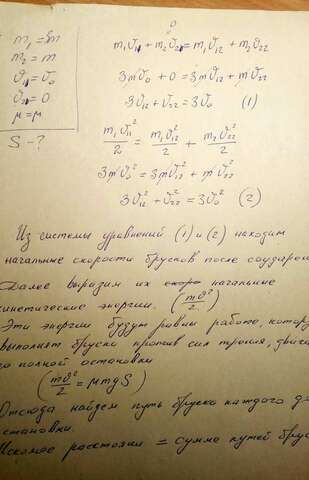 m₁ = 3m
m₂ = m
ϑ₁₁ = ϑ₀
ϑ₂₁ = 0
μ = μ
S - ?
0
m₁ϑ₁₁ + m₂ϑ₂₁ = m₁ϑ₁₂ + m₂ϑ₂₂
3mϑ₀ + 0 = 3mϑ₁₂ + mϑ₂₂
3ϑ₁₂ + ϑ₂₂ = 3ϑ₀ (1)
m₁ϑ₁₁²/2 = m₁ϑ₁₂²/2 + m₂ϑ₂₂²/2
3mϑ₀² = 3mϑ₁₂² + mϑ₂₂²
3ϑ₁₂² + ϑ₂₂² = 3ϑ₀² (2)
Из системы уравнений (1) и (2) находим
начальные скорости брусков после соударен
Далее выразим их начальные
кинетические энергии. (mϑ²/2)
Эти энергии будут равны работе, котор
выполнят бруски против сил трения, двига
до полной остановки
(mϑ²/2 = μmgS)
Отсюда найдем путь бруска каждого д
остановки.
Искомое расстояни = сумме путей брус